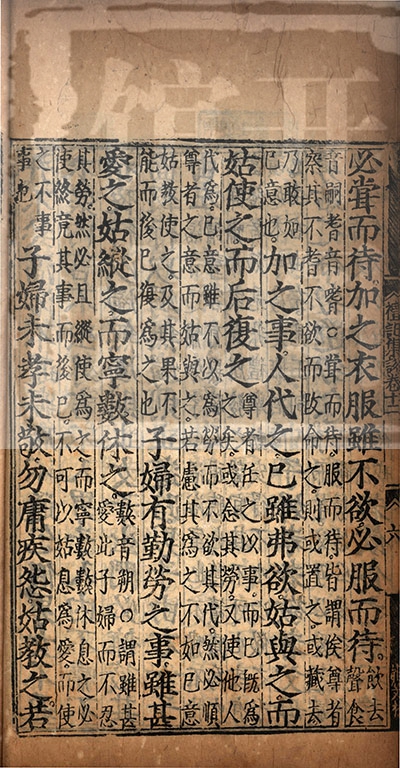 必嘗而待加之衣服雖不欲必服而待飲去聲食
音嗣耆音嗜○嘗而待服而待皆謂俟尊者
察其不耆不欲而改命之則或置之或藏去
乃敢如己意也加之事人代之已雖弗欲姑與之而
姑使之而后復之尊者任之以事而已既爲之矣或念其勞又使他人
代爲已意雖不以爲勞而不欲其代然必順
尊者之意而姑與之若慮其爲之不如已意
姑教使之及其果不能而後已復爲之也子婦有勤勞之事雖甚
愛之姑縱之而寧數休之數音朔○謂雖甚愛此子婦而不忍
其勞然必且縱使爲之而寧數數休息之必
使終竟其事而後已不可以姑息爲愛而使
之不事事也子婦未孝未敬勿庸疾怨姑教之若
禮記集說卷十二
六